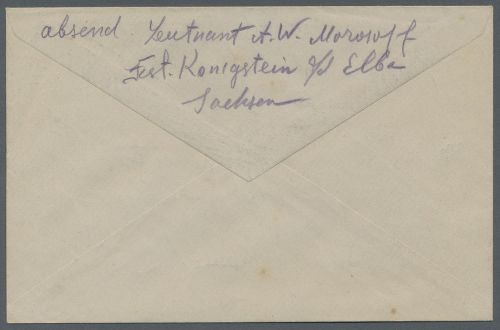 absend. Leutnant A.W. Morosoff
Fest. Konigstein a/d Elbe
Sachsen